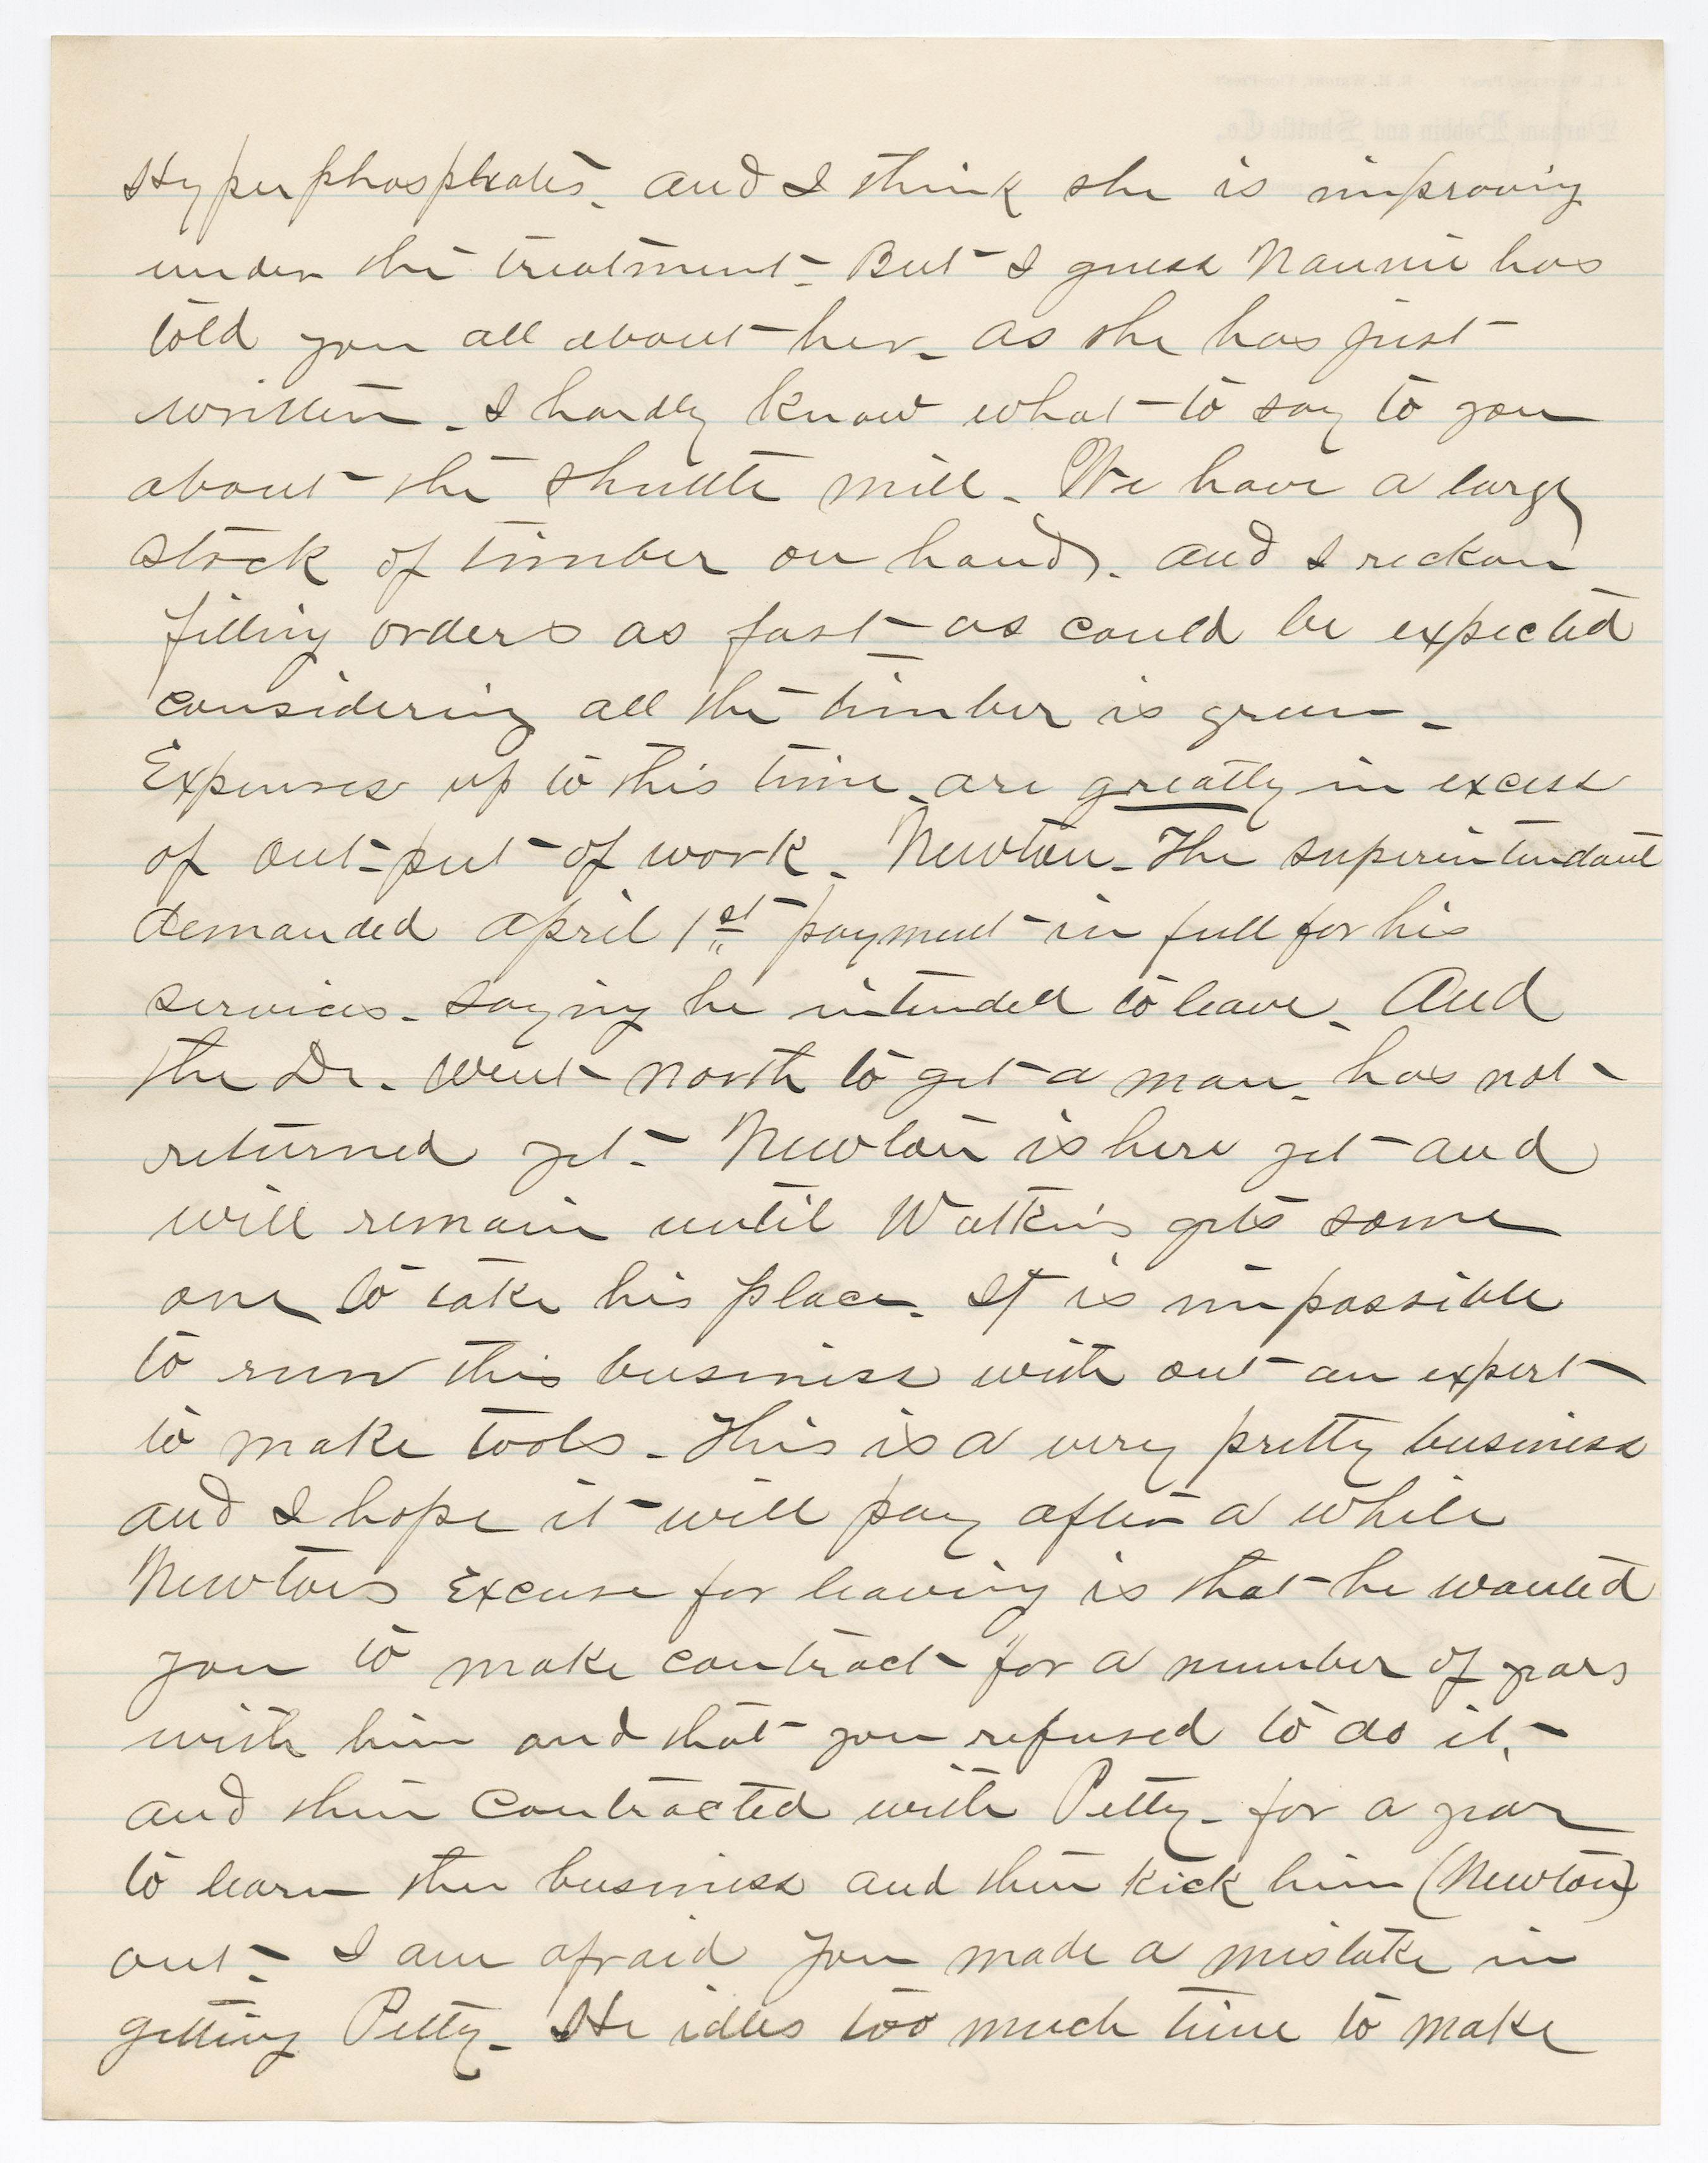 Hyperphosphates. and I think she is improving
under the treatment - But I guess Nannie has
told you all about her - as she has just
written - I hardly know what to say to you
about the Shuttle mill - We have a large
stock of timber on hand - and I reckon
filling orders as fast as could be expected
considering all the timber is green -
Expenses up to this time are greatly in excess
of out-put of work - Newton - The superintendant
demanded april 1st payment in full for his
services - saying he intended to leave - And
the Dr. went north to get a man - has not
returned yet - Newton is here yet and
will remain until Watkins gets some
one to take his place - It is impossible
to run this business with out an expert
to make tools - This is a very pretty business
and I hope it will pay after a while
Newtons Excuse for leaving is that he wanted
you to make contract for a number of years
with him and that you refused to do it -
and then contracted with Petty - for a year
to learn the business and then kick him (Newton)
out - I am afraid you made a mistake in
getting Petty - He idles too much time to make